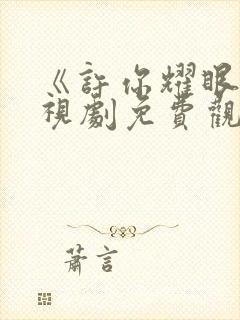 《許你耀眼
視劇免費觀
蕭言